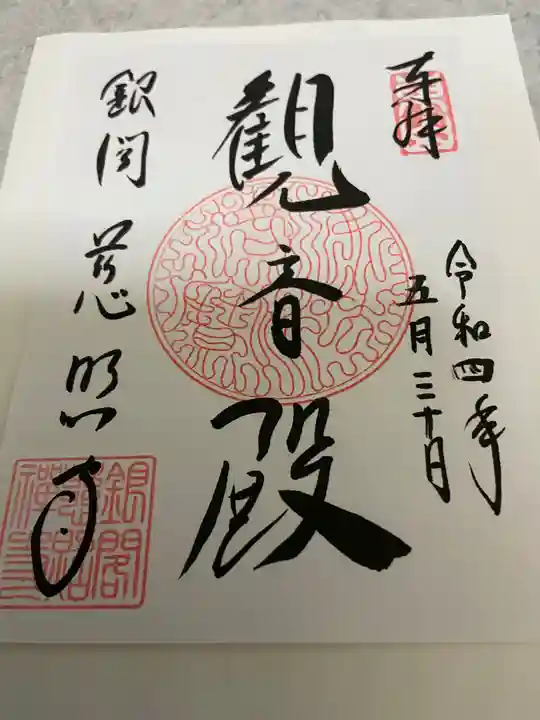 奉拝
令和四年
五月三十日
觀音殿
銀閣 慈照寺